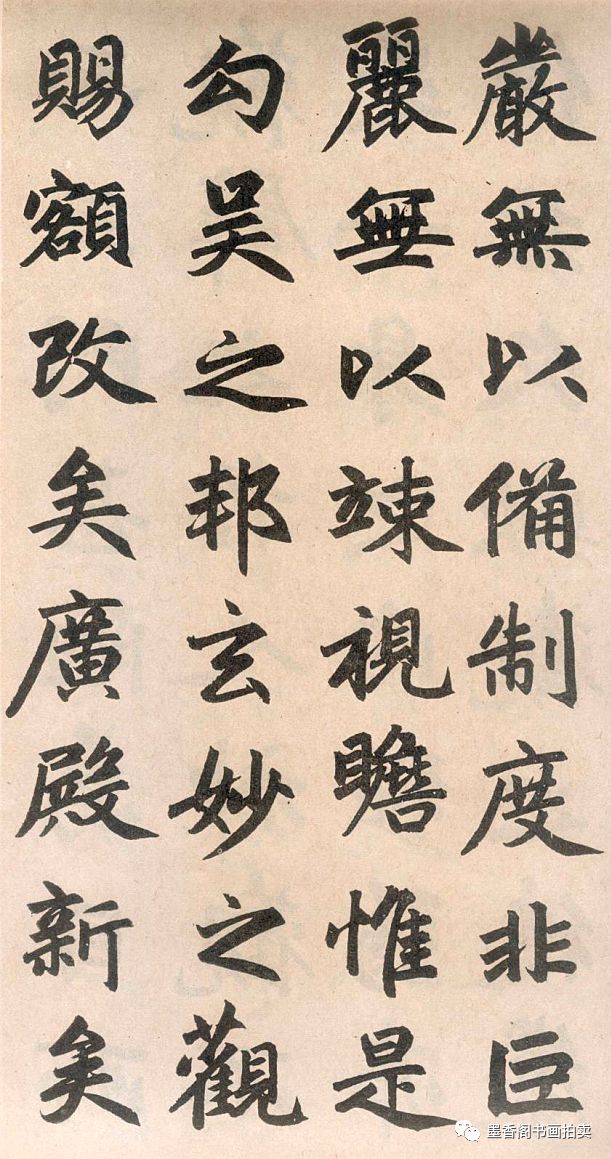 嚴無以備制度非巨
麗無以竦視瞻惟是
勾吴之邦玄妙之觀
賜額改矣廣殿新矣
墨香阁书画拍卖